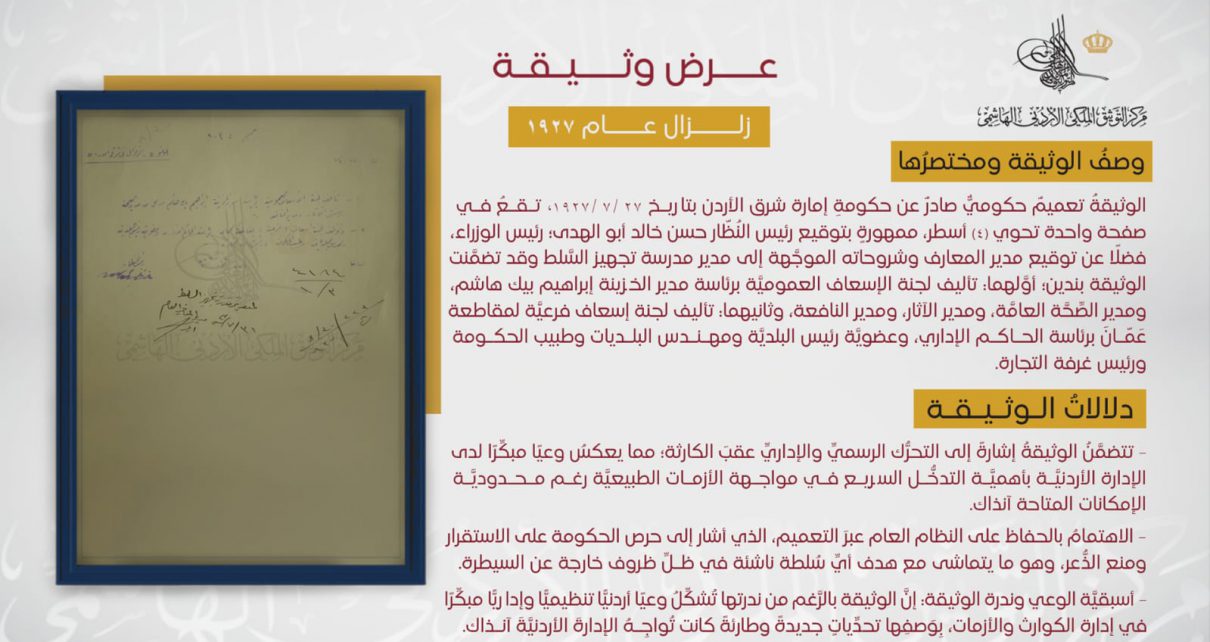 مركز التوثيق الملكي الأردني الهاشمي
عرض وثيقة
زلزال عام ١٩٢٧
وصفُ الوثيقة ومختصرُها
الوثيقةُ تعميمٌ حكوميٌّ صادرٌ عن حكومةِ إمارة شرق الأردن بتاريخ ٢٧ /٧ /١٩٢٧، تقعُ في
صفحة واحدة تحوي (٤) أسطر، ممهورةٍ بتوقيع رئيس النُظّار حسن خالد أبو الهدى؛ رئيس الوزراء،
فضلًا عن توقيع مدير المعارف وشروحاته الموجَّهة إلى مدير مدرسة تجهيز السَّلط وقد تضمَّنت
الوثيقة بندين؛ أوَّلهما: تأليف لجنة الإسعاف العموميَّة برئاسة مدير الخزينة إبراهيم بيك هاشم،
ومدير الصِّحَّة العامَّة، ومدير الآثار، ومدير النافعة، وثانيهما: تأليف لجنة إسعاف فرعيَّة لمقاطعة
عَمَّانَ برئاسة الحاكم الإداري، وعضويَّة رئيس البلديَّة ومهندس البلديات وطبيب الحكومة
ورئيس غرفة التجارة.
دلالاتُ الوثيقة
- تتضمَّنُ الوثيقةُ إشارةً إلى التحرُّك الرسميِّ والإداريِّ عقبَ الكارثة؛ مما يعكسُ وعيًا مبكِّرًا لدى
الإدارة الأردنيَّة بأهميَّة التدخُّل السريع في مواجهة الأزمات الطبيعيَّة رغم محدوديَّة
الإمكانات المتاحة آنذاك.
- الاهتمامُ بالحفاظ على النظام العام عبرَ التعميم، الذي أشار إلى حرص الحكومة على الاستقرار
ومنع الذُّعر، وهو ما يتماشى مع هدف أيِّ سُلطة ناشئة في ظلِّ ظروف خارجة عن السيطرة.
- أسبقيَّة الوعي وندرة الوثيقة: إنَّ الوثيقة بالرَّغم من ندرتها تُشكِّلُ وعيًا أردنيًّا تنظيميًّا وإداريًّا مبكِّرًا
في إدارة الكوارث والأزمات، بِوَصفِها تحدِّياتٍ جديدةً وطارئةً كانت تُواجِهُ الإدارةَ الأردنيَّةَ آنذاك.